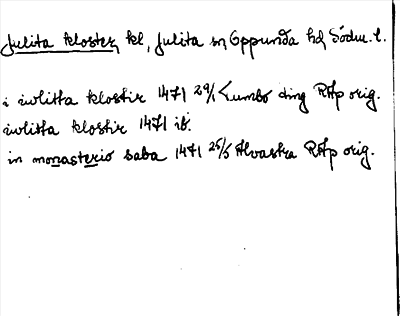 Julita kloster, kl, Julita sn Oppunda hd Södm. l.
i iulitta klostir 1471 29/1 Lumbo ding RAp orig.
iulitta klostir 1471 ib.
in monasterio saba 1471 25/5 Alvastra RAp orig.